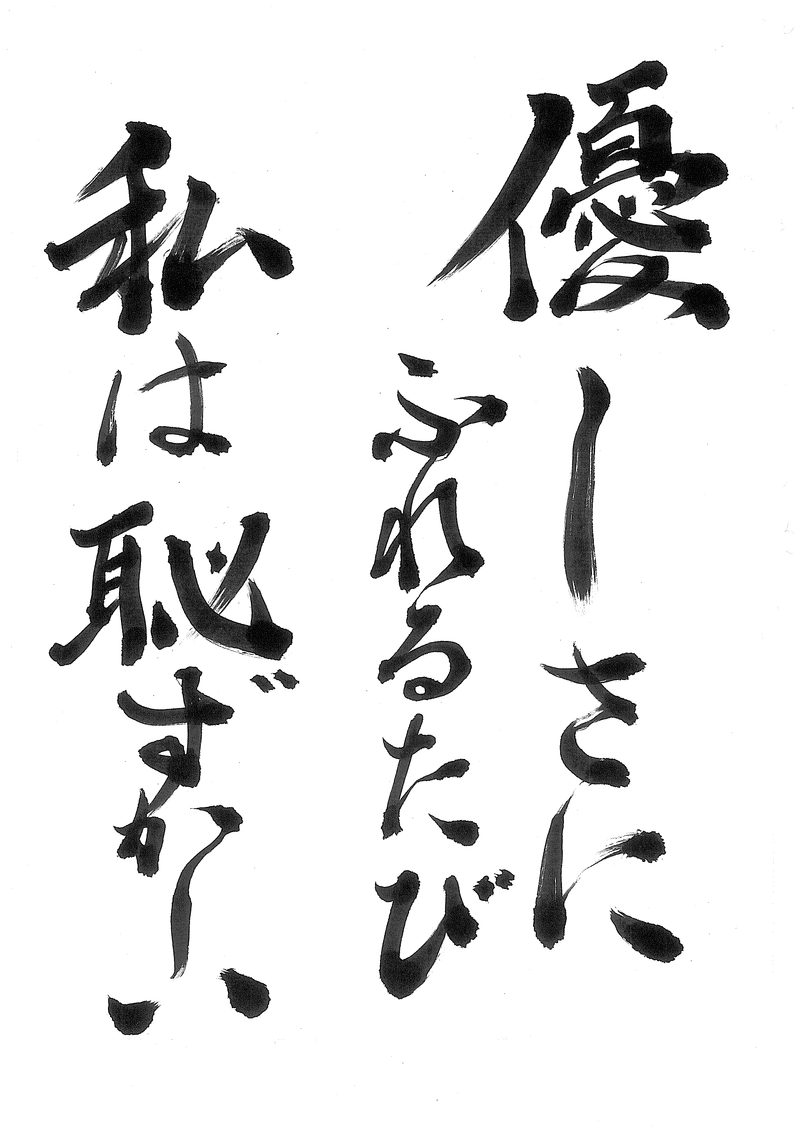 優しさに
ふれるたび
私は恥ずかしい